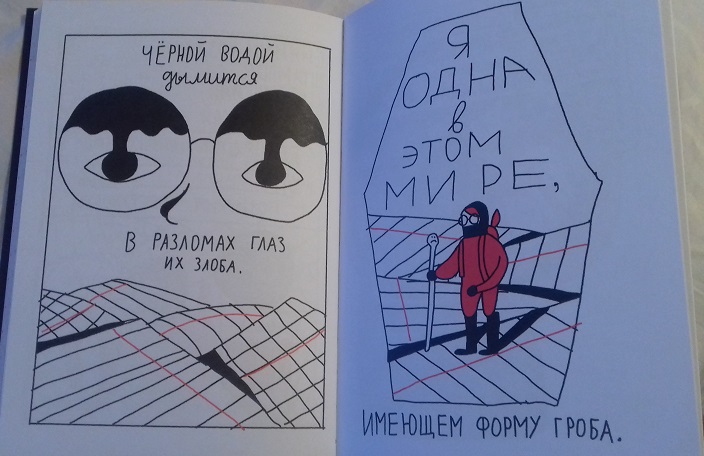 ЧЁРНОЙ ВОДОЙ
дымится
В РАЗЛОМАХ ГЛАЗ
ИХ ЗЛОБА.
Я
ОДНА
в
ЭТОМ
МИРЕ,
ИМЕЮЩЕМ ФОРМУ ГРОБА.